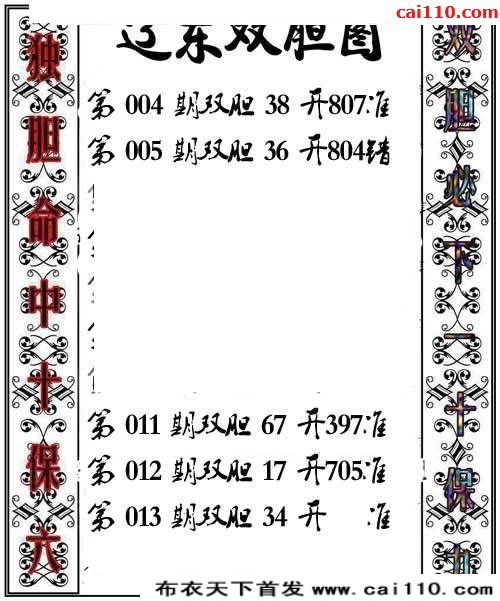 cai110.com
辽东双胆图
第 004 期双胆 38 开807准
第 005 期双胆 36 开804错
第 011 期双胆 67 开397准
第 012 期双胆 17 开705准
第 013 期双胆 34 开 准
独胆命中十保六
双胆必下一十保九
布衣天下首发 www.cai110.com